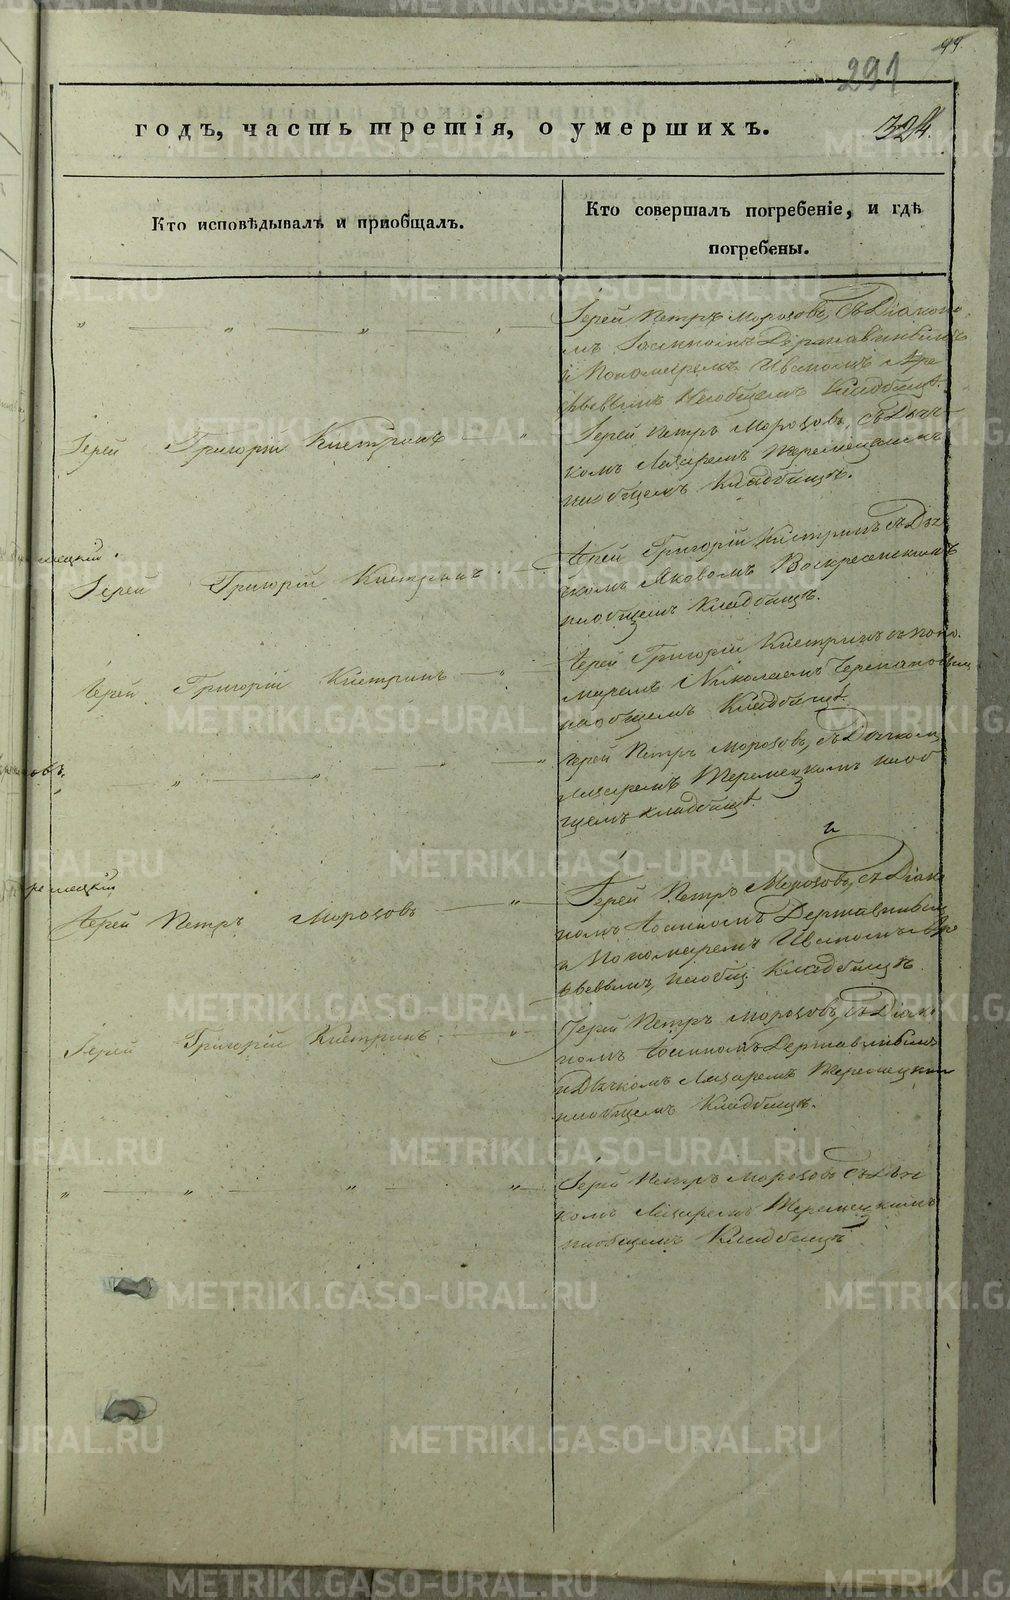 99
291
годъ, часть третія, о умершихъ.
324.
Кто исповѣдывалъ и пріобщалъ.
Кто совершалъ погребеніе, и гдѣ
погребены.
Іерей Петръ Морозовъ, съ Діаконо
мъ Іоанномъ Державинымъ
и Пономаремъ Иваномъ
Наобщемъ Кладбищѣ.
Іерей Григорій Кистринъ
Іерей Петръ Морозовъ, съ Дьяч
комъ Лазаремъ Теремецкимъ
наобщемъ кладбищѣ.
Іерей Григорій Кистринъ
Іерей Григорій Кистринъ съ Дья
чкомъ Яковомъ Воскресенскимъ
наобщемъ Кладбищѣ.
Іерей Григорій Кистринъ
Іерей Григорій Кистринъ съ поно
маремъ Николаемъ Черепановымъ
наобщемъ Кладбищѣ.
Іерей Петръ Морозовъ, съ Дьячкомъ
Лазаремъ Теремецкимъ наоб
щемъ кладбищѣ.
Іерей Петръ Морозовъ
Іерей Петръ Морозовъ, съ Діако
номъ Іоанномъ Державинымъ
и Пономаремъ Иваномъ
наобщ. Кладбищѣ
Іерей Григорій Кистринъ
Іерей Петръ Морозовъ, съ Діако
номъ Іоанномъ Державинымъ
и Дьячкомъ Лазаремъ Теремецким
наобщемъ Кладбищѣ.
Іерей Петръ Морозовъ съ Дьяч
комъ Лазаремъ Теремецкимъ
наобщемъ Кладбищѣ
METRIKI.GASO-URAL.RU